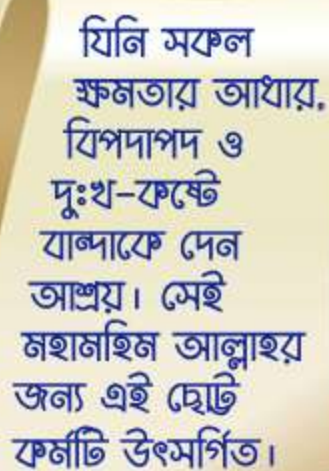 যিনি সকল
ক্ষমতার আধার,
বিপদাপদ ও
দুঃখ-কষ্টে
বান্দাকে দেন
আশ্রয়। সেই
মহামহিম আল্লাহর
জন্য এই ছোট্ট
কর্মটি উৎসর্গিত।